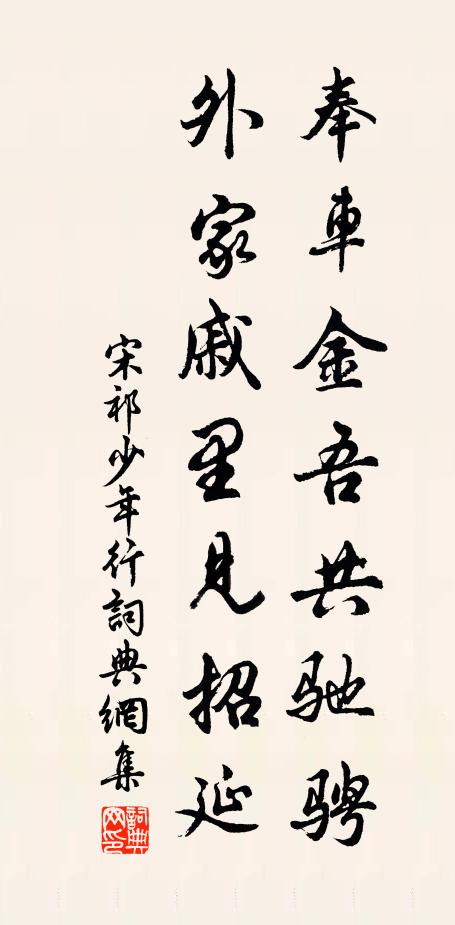 奉車金吾共馳騁
外家戚里見招延
宋祁少年行詞典網集
詞典網印